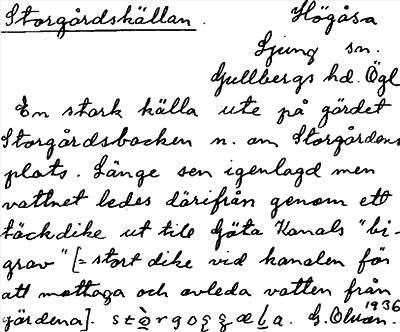 Storgårdskällan. Högåsa
Ljung sn.
Gullbergs hd. Ögl
En stark källa ute på gärdet
Storgårdsbacken n. om Storgårdens
plats. Länge sen igenlagd men
vattnet ledes därifrån genom ett
täckdike ut till Göta Kanals "bi-
grav" [= stort dike vid kanalen för
att mottaga och avleda vatten från
gärdena]. G. Olson. 1936